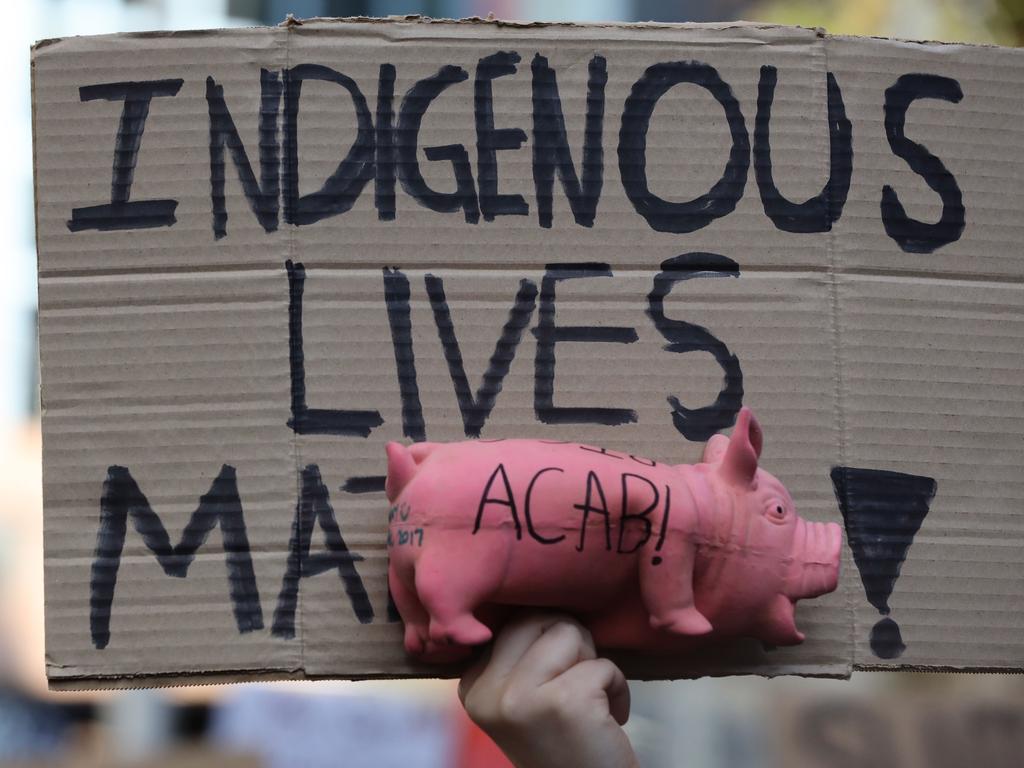 INDIGENOUS
LIVES
MA !
ACAB!
2017